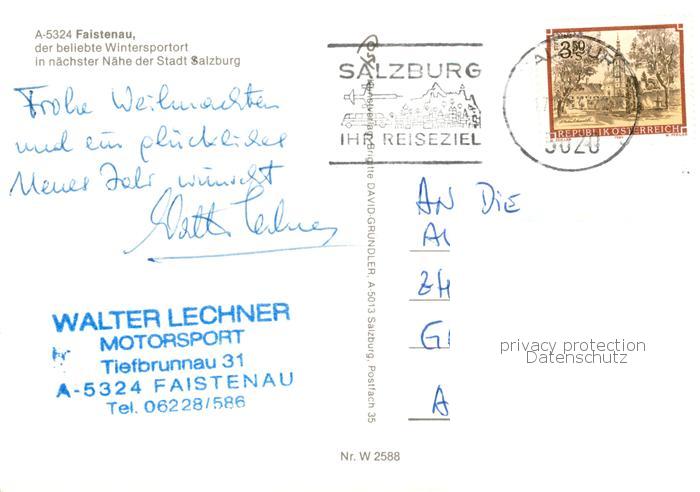 A-5324 Faistenau,
der beliebte Wintersportort
in nächster Nähe der Stadt Salzburg
Frohe Weihnachten
und ein glückliches
Neues Jahr wünscht
Walter Lechner
WALTER LECHNER
MOTORSPORT
Tiefbrunnau 31
A-5324 FAISTENAU
Tel. 06228/586
Kunstverlag Brigitte DAVID-GRÜNDLER, A-5013 Salzburg, Postfach 35
Nr. W 2588
SALZBURG
IHR REISEZIEL
5020
3.50
REPUBLIK ÖSTERREICH
AN DIE
AI
ZH
GI
A
privacy protection
Datenschutz